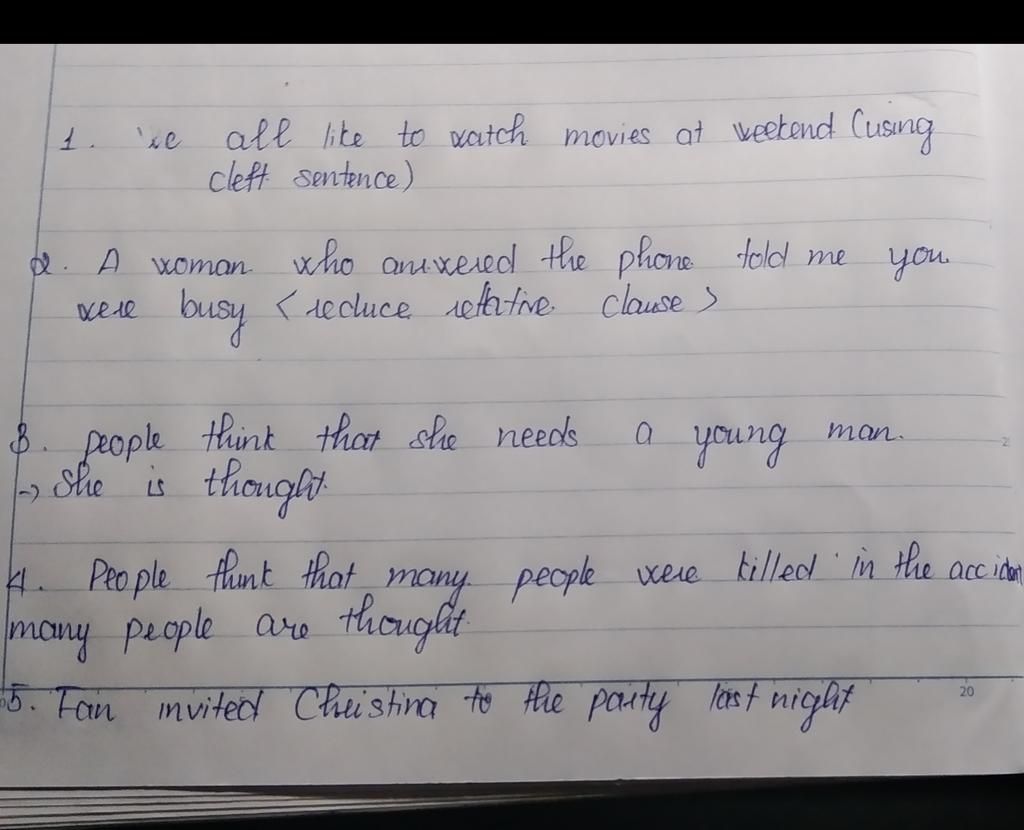 1. We all like to watch movies at weekend (using
cleft sentence)
2. A woman who answered the phone told me you
were busy < reduce relative clause >
3. people think that she needs a young man.
-> She is thought.
4. People think that many people were killed in the acciden
many people are thought.
5. Fan invited Christina to the party last night
20